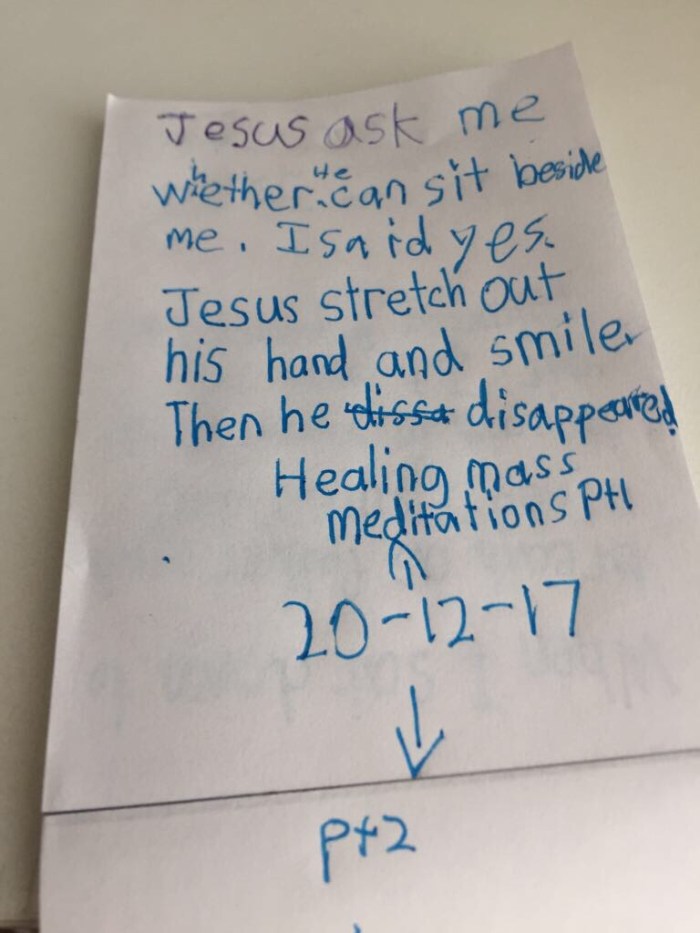 Jesus ask me
whether He can sit beside
me. I said yes.
Jesus stretch out
his hand and smile.
Then he dissa disappeared
Healing mass
meditations Pt1
20-12-17
pt2